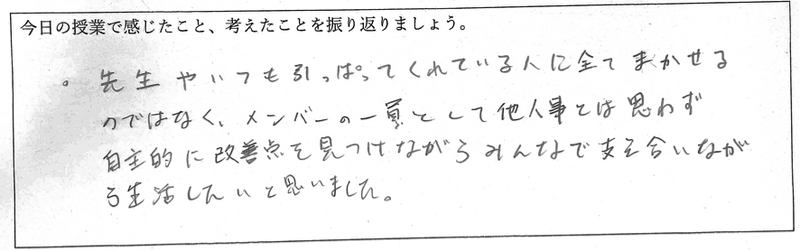 今日の授業で感じたこと、考えたことを振り返りましょう。
。先生やいつも引っぱってくれている人に全てまかせる
のではなく、メンバーの一員として他人事とは思わず
自主的に改善点を見つけながらみんなで支え合いなが
ら生活したいと思いました。